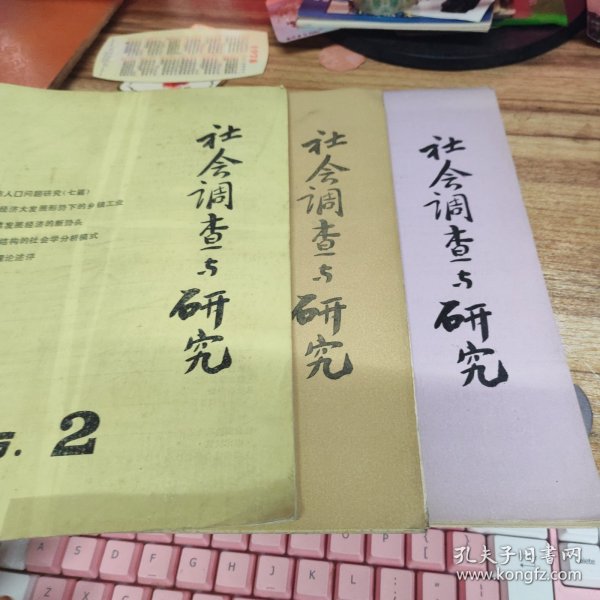 社会调查与研究
人口问题研究(七篇)
经济大发展形势下的乡镇工业
发展经济的新势头
结构的社会学分析模式
理论述评
5. 2
社会调查与研究
社会调查与研究
孔夫子旧书网
www.kongfz.com